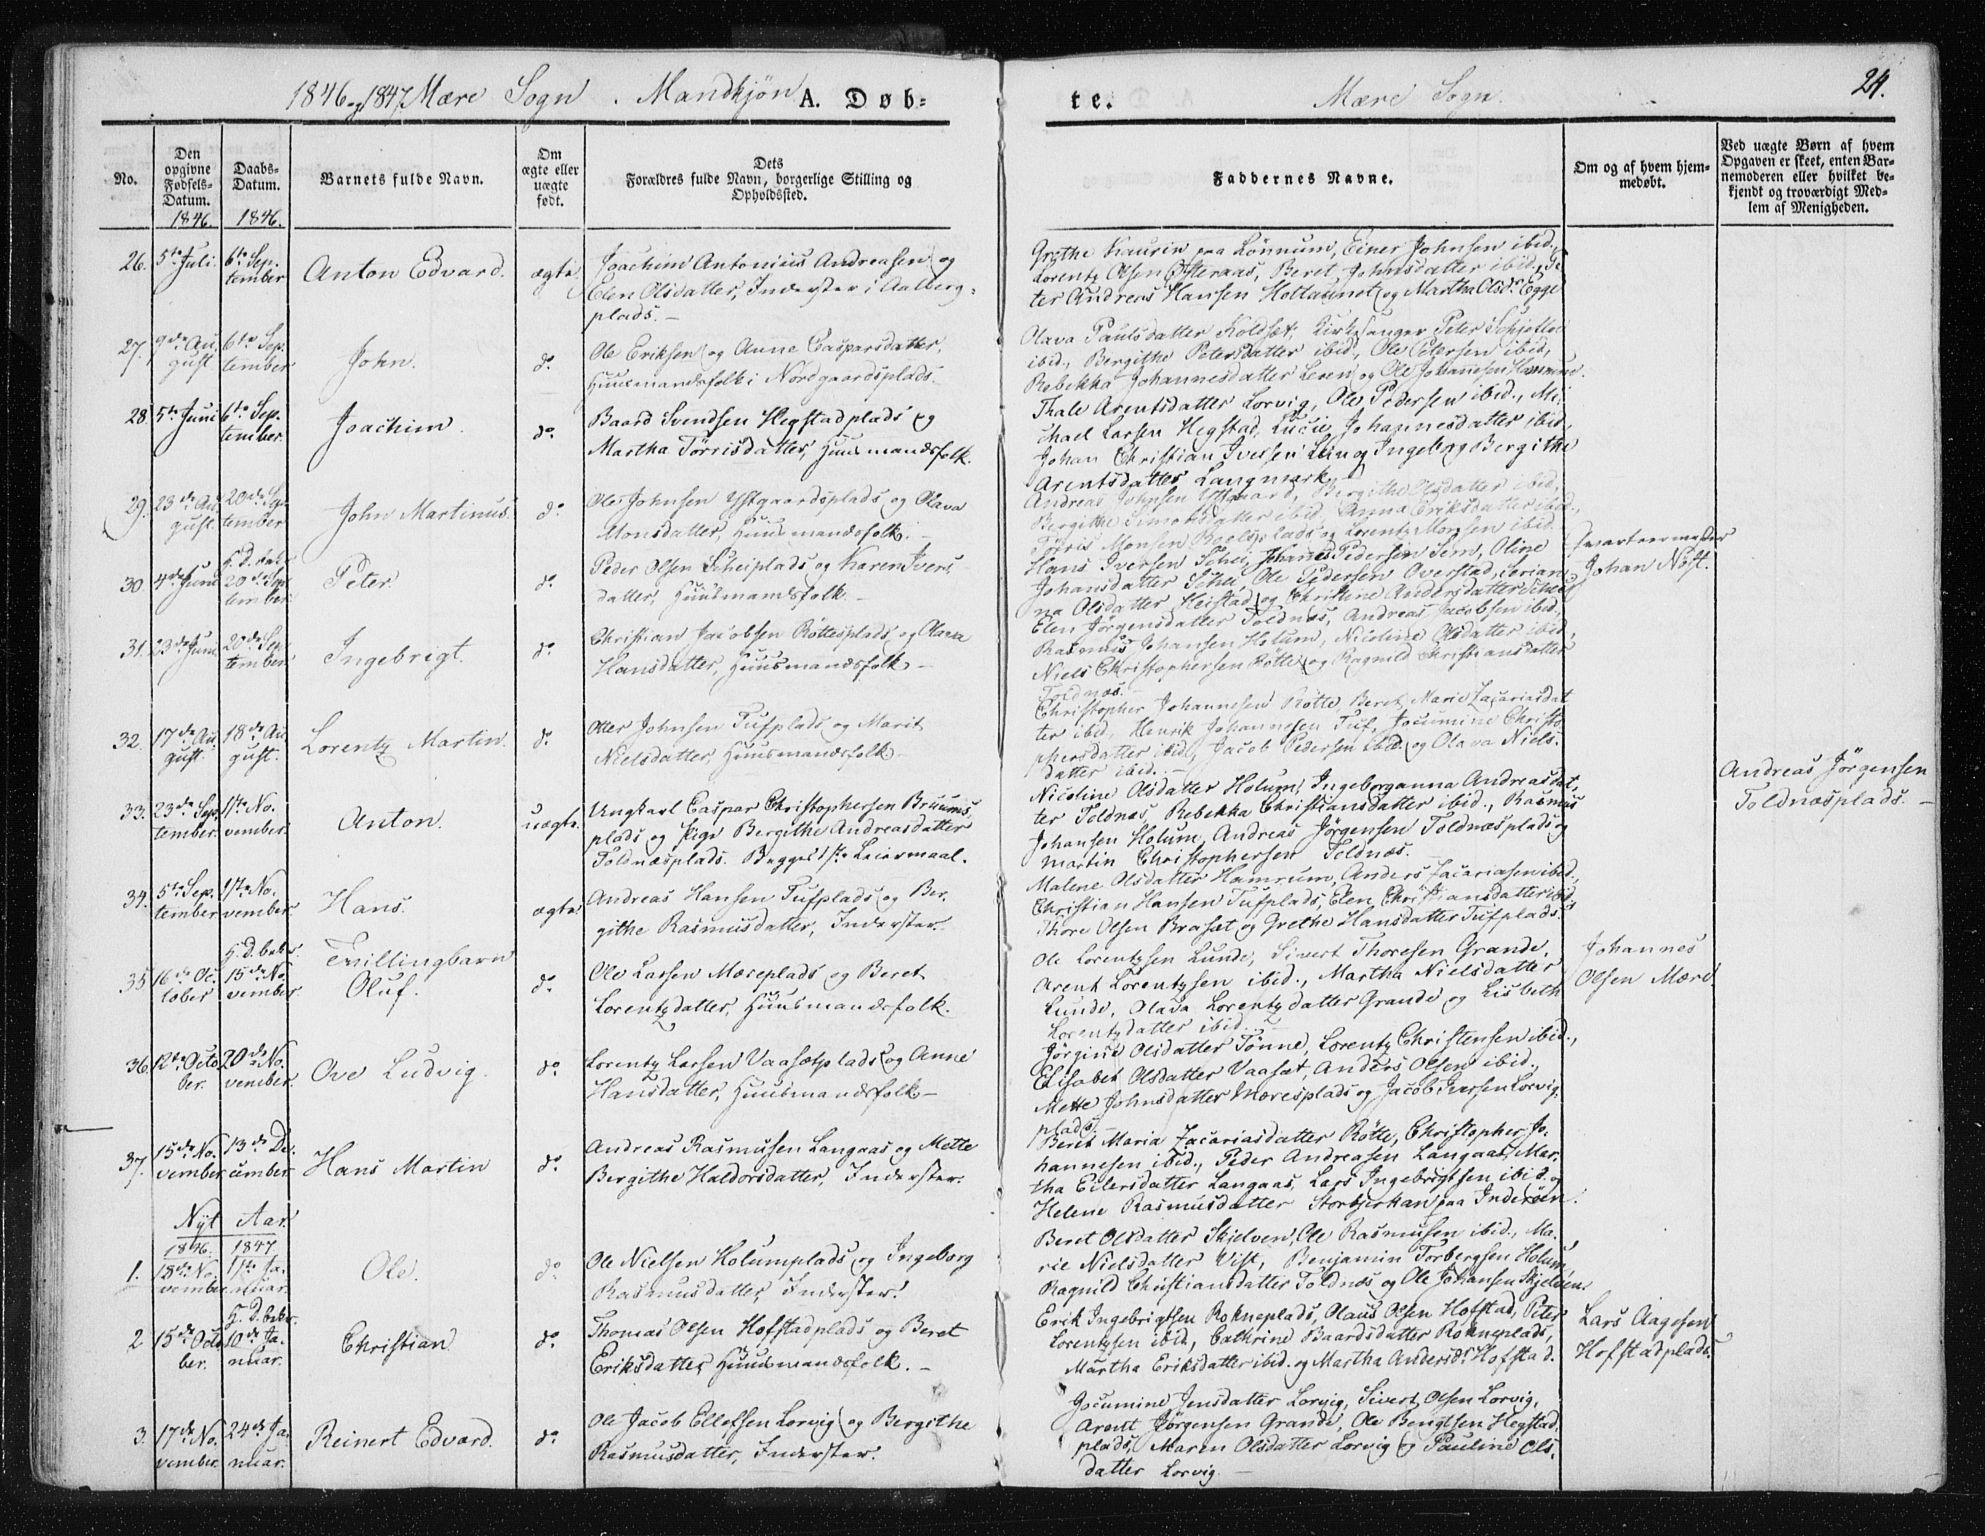 1846 og 1847. Mære Sogn. Mandkjøn A. Døb-
te. Mære Sogn. 24.
No.
Den opgivne Fødsels-Datum. 1846.
Daabs-Datum. 1846.
Barnets fulde Navn.
Om ægte eller uægte født.
Dets Forældres fulde Navn, borgerlige Stilling og Opholdssted.
Faddernes Navne.
Om og af hvem hjem-
medøbt.
Ved uægte Børn af hvem
Opgaven er skeet, enten Bar-
nemoderen eller hvilket be-
kjendt og troværdigt Med-
lem af Menigheden.
26. 5te Juli 6te Sep-
tember
Anton Edvard. ægte
Joachim Antonius Andreasen og
Elen Olsdatter, Inderster i Aalberg-
plads.
Grethe Kaurin paa Lønnum, Einer Johnsen ibid.,
Lorentz Olsen Østeraas, Beret Johnsdatter ibid., Pe-
ter Andreas Hansen og Martha Olsdr. Egge
27. 9de Au-
gust 6te Sep-
tember
John. do.
Ole Eriksen og Anne Caspersdatter,
Huusmandsfolk i Nordgaardsplads.
Olava Paulsdatter Koldset, Kirkesanger Peter Schjotloe
ibid., Bergithe Petersdatter ibid., Ole Petersen ibid,
Rebekka Johannesdatter Leren og Ole Johannesen
28. 5te Juni 6te Sep-
tember
Joachim. do.
Baard Svendsen Hegstadplads og
Martha Tørrisdatter, Huusmandsfolk.
Thale Arentsdatter Lorvig, Ole Pedersen ibid., Mi-
chael Larsen Hegstad, Lucie Johannesdatter ibid,
Johan Christian Iversen Lein og Ingeborg Bergithe
Arentsdatter Langmark.
29. 23de Au-
gust. 20de Sep-
tember
John Martinus. do.
Ole Johnsen Ystgaardsplads og Olava
Monsdatter, Huusmandsfolk.
Andreas Johnsen Ystgaard, Bergithe Olsdatter ibid,
Bergithe Simonsdatter ibid, Anna Eriksdatter ibid.,
Tørris Monsen og Lorentz Monsen ibid.
30. 4de Juni H. D. bekr.
20de Sep-
tember
Peter. do.
Peder Olsen Scheiplads og Karen Ivers-
datter, Huusmandsfolk.
Hans Iversen Schei, Johannes Pedersen Sem, Oline
Johansdatter Schei, Ole Pedersen Overstad, Serian-
na Olsdatter Heistad og Christine Andersdatter Schei
Johan Nøst.
31. 23de Juni 20de Sep-
tember
Ingebrigt. do.
Christian Jacobsen Røttesplads og Olava
Hansdatter, Huusmandsfolk.
Elen Jørgensdatter Toldnæs, Andreas Jacobsen ibid,
Rasmus Johansen Holum, Nicoline Olsdatter ibid,
Niels Christophersen Røtte og Ragnild Christiansdatter
Toldnæs.
32. 17de Au-
gust. 18de Au-
gust.
Lorentz Martin. do.
Oler Johnsen Tufplads og Marit
Nielsdatter, Huusmandsfolk.
Christopher Johannesen Røtte, Beret Marie Zacariasdat
ter ibid, Henrik Johannesen Tuf, Jocumine Christo-
phersdatter ibid, Jacob Pedersen ibid. og Olava Niels-
datter ibid.
33. 23de Sep-
tember. 1ste No-
vember.
Anton. uægte.
Ungkarl Caspar Christophersen Bruums-
plads og Pige Bergithe Andreasdatter
Toldnæsplads. Begges 1ste Leiermaal.
Nicoline Olsdatter Holum, Ingeborganna Andreasdat-
ter Toldnæs, Rebekka Christiansdatter ibid., Rasmus
Johansen Holum, Andreas Jørgensen Toldnæsplads og
Martin Christophersen Toldnæs.
Andreas Jørgensen
Toldnæsplads.
34. 5te Sep-
tember 1ste No-
vember.
Hans. ægte.
Andreas Hansen Tufplads og Ber-
githe Rasmusdatter, Inderster.
Malene Olsdatter Hamrum, Anders Zacariasen ibid.,
Christian Hansen Tufplads, Elen Christiansdatter ibid.,
Thore Olsen Braset og Grethe Hansdatter Tufplads.
35. 16de Oc-
tober H. D. bekr.
15de No-
vember.
Tvillingbarn
Oluf. do.
Ole Larsen Mæreplads og Beret
Lorentzdatter, Huusmandsfolk.
Ole Lorentzsen Lunde, Sivert Thoresen Grande,
Arent Lorentzsen ibid., Martha Nielsdatter
Lunde, Olava Lorentzdatter Grande og Lisbeth
Lorentzdatter ibid.
Johannes
Olsen Mære.
36. 12te Octo-
ber. 20de No-
vember.
Ove Ludvig. do.
Lorentz Larsen Vaasætplads og Anne
Hansdatter, Huusmandsfolk.
Jørgine Olsdatter Tønne, Lorentz Christensen ibid.,
Elisabet Olsdatter Vaasæt, Anders Olsen ibid.,
Mette Johnsdatter Mæresplads og Jacob Iversen Lorvig-
plads.
37. 15de No-
vember 13de De-
cember.
Hans Martin do.
Andreas Rasmusen Langaas og Mette
Bergithe Haldorsdatter, Inderster.
Beret Maria Zacariasdatter Røtte, Christopher Jo-
hannesen ibid., Peder Andreasen Langaas, Mar-
tha Eilersdatter Langaas, Lars Ingebrigtsen ibid. og
Helene Rasmusdatter Storbjerkan paa Inderøen.
Nyt Aar.
1846. 1847
1. 18de No-
vember 1ste Ja-
nuar.
Ole. do.
Ole Nielsen Holumplads og Ingeborg
Rasmusdatter, Inderster.
Beret Olsdatter Skjelven, Ole Rasmusen ibid., Ma-
rie Nielsdatter Vist, Benjamin Torbergsen Holum,
Ragnild Christiansdatter Toldnæs og Ole Johansen Skjelven.
2 15de Octo-
ber. H. D. bekr.
10de Ja-
nuar.
Christian do.
Thomas Olsen Hofstadplads og Beret
Eriksdatter, Huusmandsfolk.
Erik Ingebrigtsen Rokneplads, Olaus Olsen Hofstad, Peter
Lorentzsen ibid, Cathrine Baardsdatter Rokneplads,
Martha Eriksdatter ibid. og Martha Andersdr. Hofstad.
Lars Aagesen
Hofstadplads.
3. 17de No-
vember. 24de Ja-
nuar.
Reinert Edvard. do.
Ole Jacob Ellefsen Lorvig og Bergithe
Rasmusdatter, Inderster.
Jocumine Jensdatter Lorvig, Sivert Olsen Lorvig,
Arent Jørgensen Grande, Ole Bengtsen Hegstad-
plads, Maren Olsdatter Lorvig og Pauline Ols-
datter Lorvig.